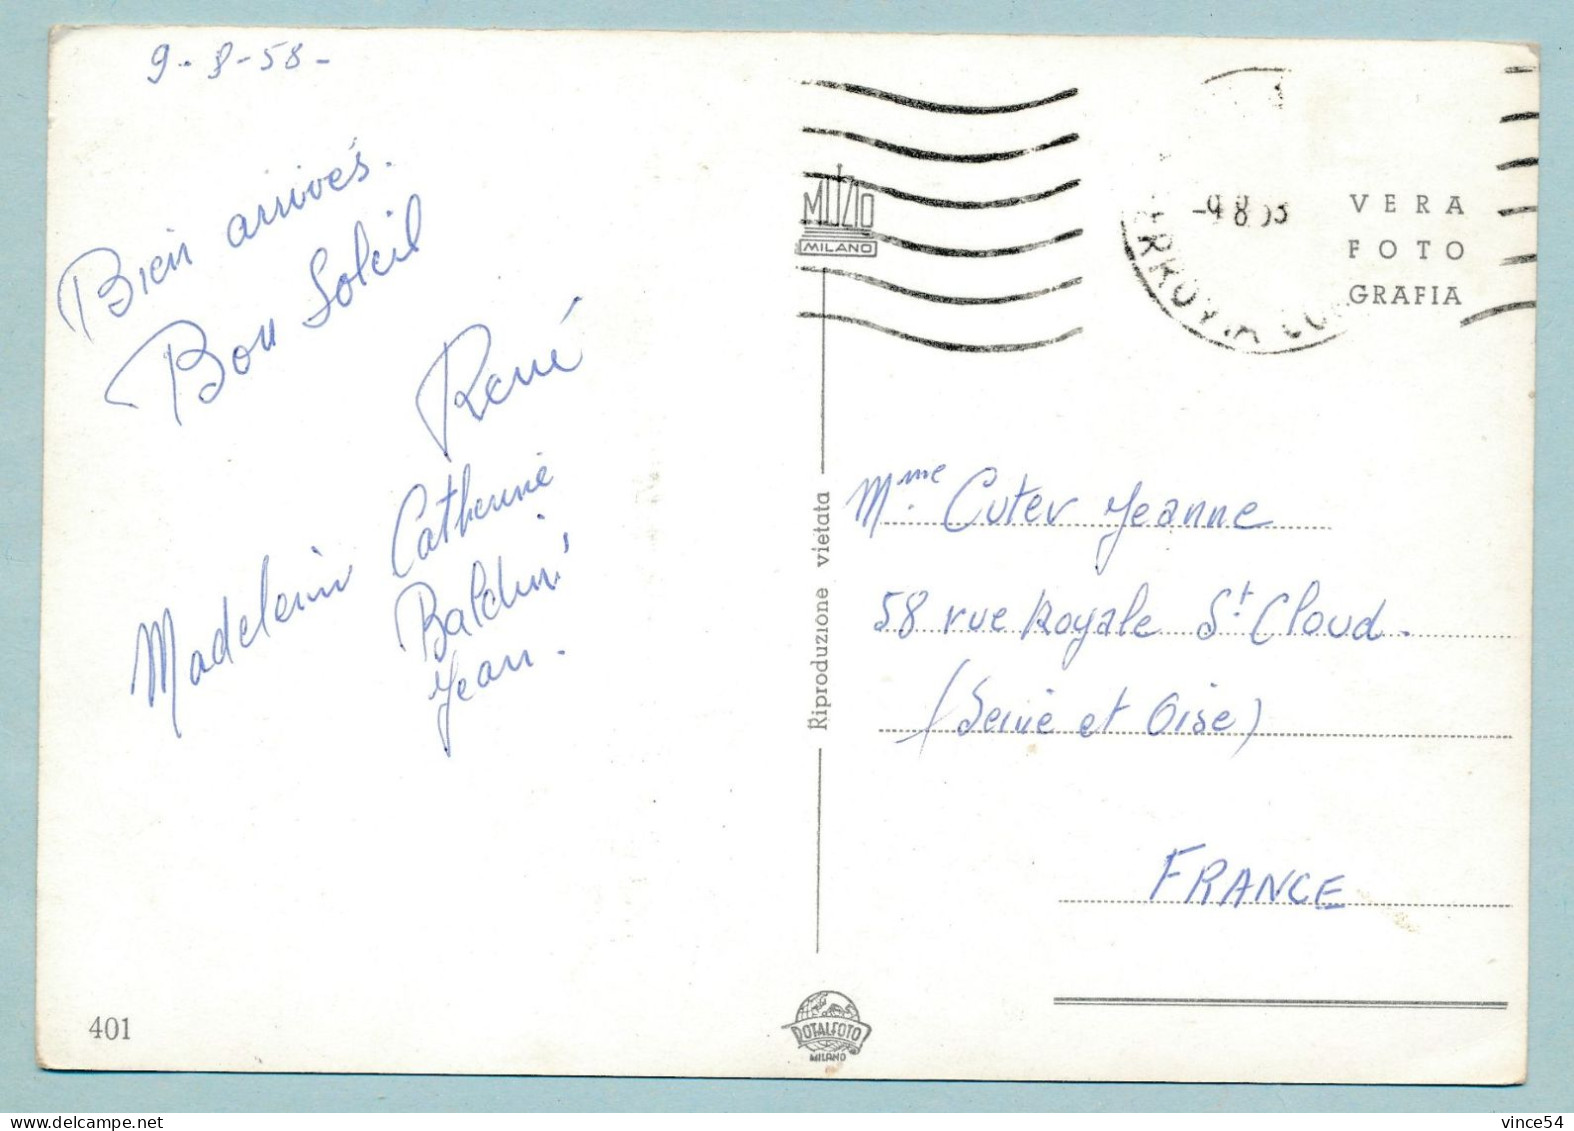 9-8-58-
Bien arrivés.
Bon Soleil
René
Madeleine Catherine
Baldini
Jean.
401
MUZIO
MILANO
Riproduzione vietata
DOTALFOTO
MILANO
-9.8.58
VERA
FOTO
GRAFIA
Mme Cuter Jeanne
58 rue Royale St. Cloud.
(Seine et Oise)
FRANCE
vince54